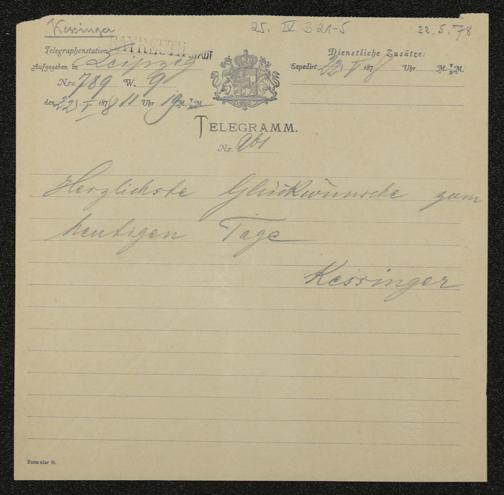 Kessinger
25. IV B 21-5
22.5.78
Telegraphenstation BAYREUTH STADT
Aufgegeben in Leipzig
Nro. 789 W. 9
den 22/V 1878 11 Uhr 19 M.
Dienstliche Zusätze:
Expedirt 22/V 1878 Uhr M.
TELEGRAMM.
Nr. 961
Herzlichste Glückwünsche zum
heutigen Tage
Kessinger
Formular